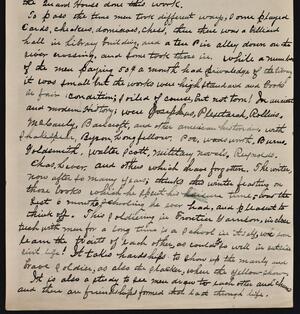 the Guard House done this work.
To pass the time men took different ways, some played
Cards, checkers, dominoes, Chess, then there was a billiard
hall in Library building, and a ten Pin alley down on the
river crossing, and some took those in. While a number
of the men paying 50¢ a month had priveledge of the library
it was small but the works were high standard and Books
in fair condition, soiled of course, but not torn! In ancient
and modern History were Josephus, Plutarch, Rollins,
Macaulay, Bancroft, and other american historians, with
Shakespeare, Byron, Longfellow, Poe, wadsworth, Burns,
Goldsmith, Walter Scott, Military novels, Reynolds,
Chas. Lever, and others which I have forgotten. The writer,
now after so many years, thinks this winter feasting on
those books which he spent his leisure time, was the
best 6 months schooling he ever had, and pleasant to
think off. This soldiering in Frontier Garrison, in close
touch with men for a long time is a school in itself, we
learn the traits of each other, as could as well in entire
civil life! It takes hardships to show up the manly and
brave soldier, as also the shacker, when the yellow shows
It is also a study to see men drawn to each other and
and there are friendships formed that last through life.